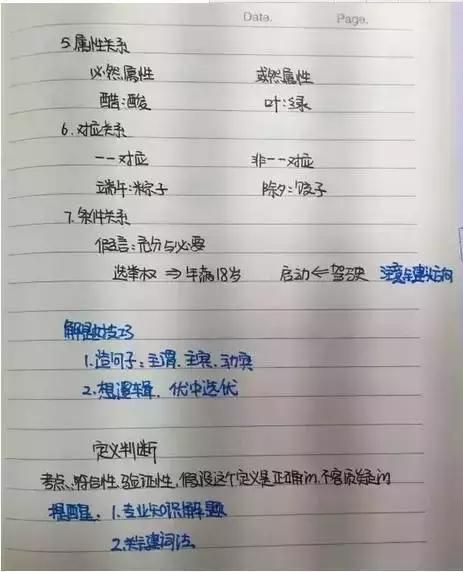 Date. Page.
5.属性关系
必然属性 或然属性
醋:酸 叶:绿
6.对应关系
一一对应 非一一对应
端午:粽子 除夕:饺子
7.条件关系
假言:充分与必要
选举权 ⇒ 年满18岁 启动 ⇐ 驾驶 注意与建头方向
解题技巧
1.造句子:主谓.主宾.动宾
2.想逻辑.优中选优
定义判断
考点、符合性验证性,假设这个定义是正确的.不容质疑的
提醒.1.专业知识解题
2.关键词法